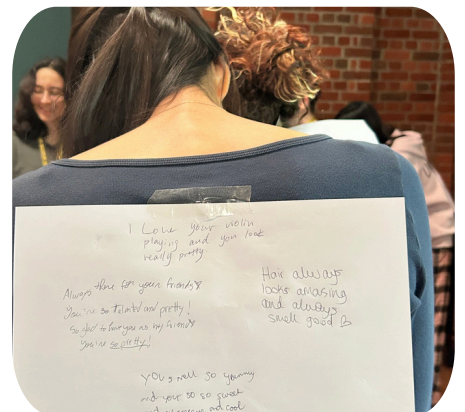 I Love your violin
playing and you look
really pretty
Always there for your friends
You're so talented and pretty!
So glad to have you as my friend
You're so pretty!
Hair always
looks amazing
and always
smell good
you smell so yummy
and your so so sweet
and cool